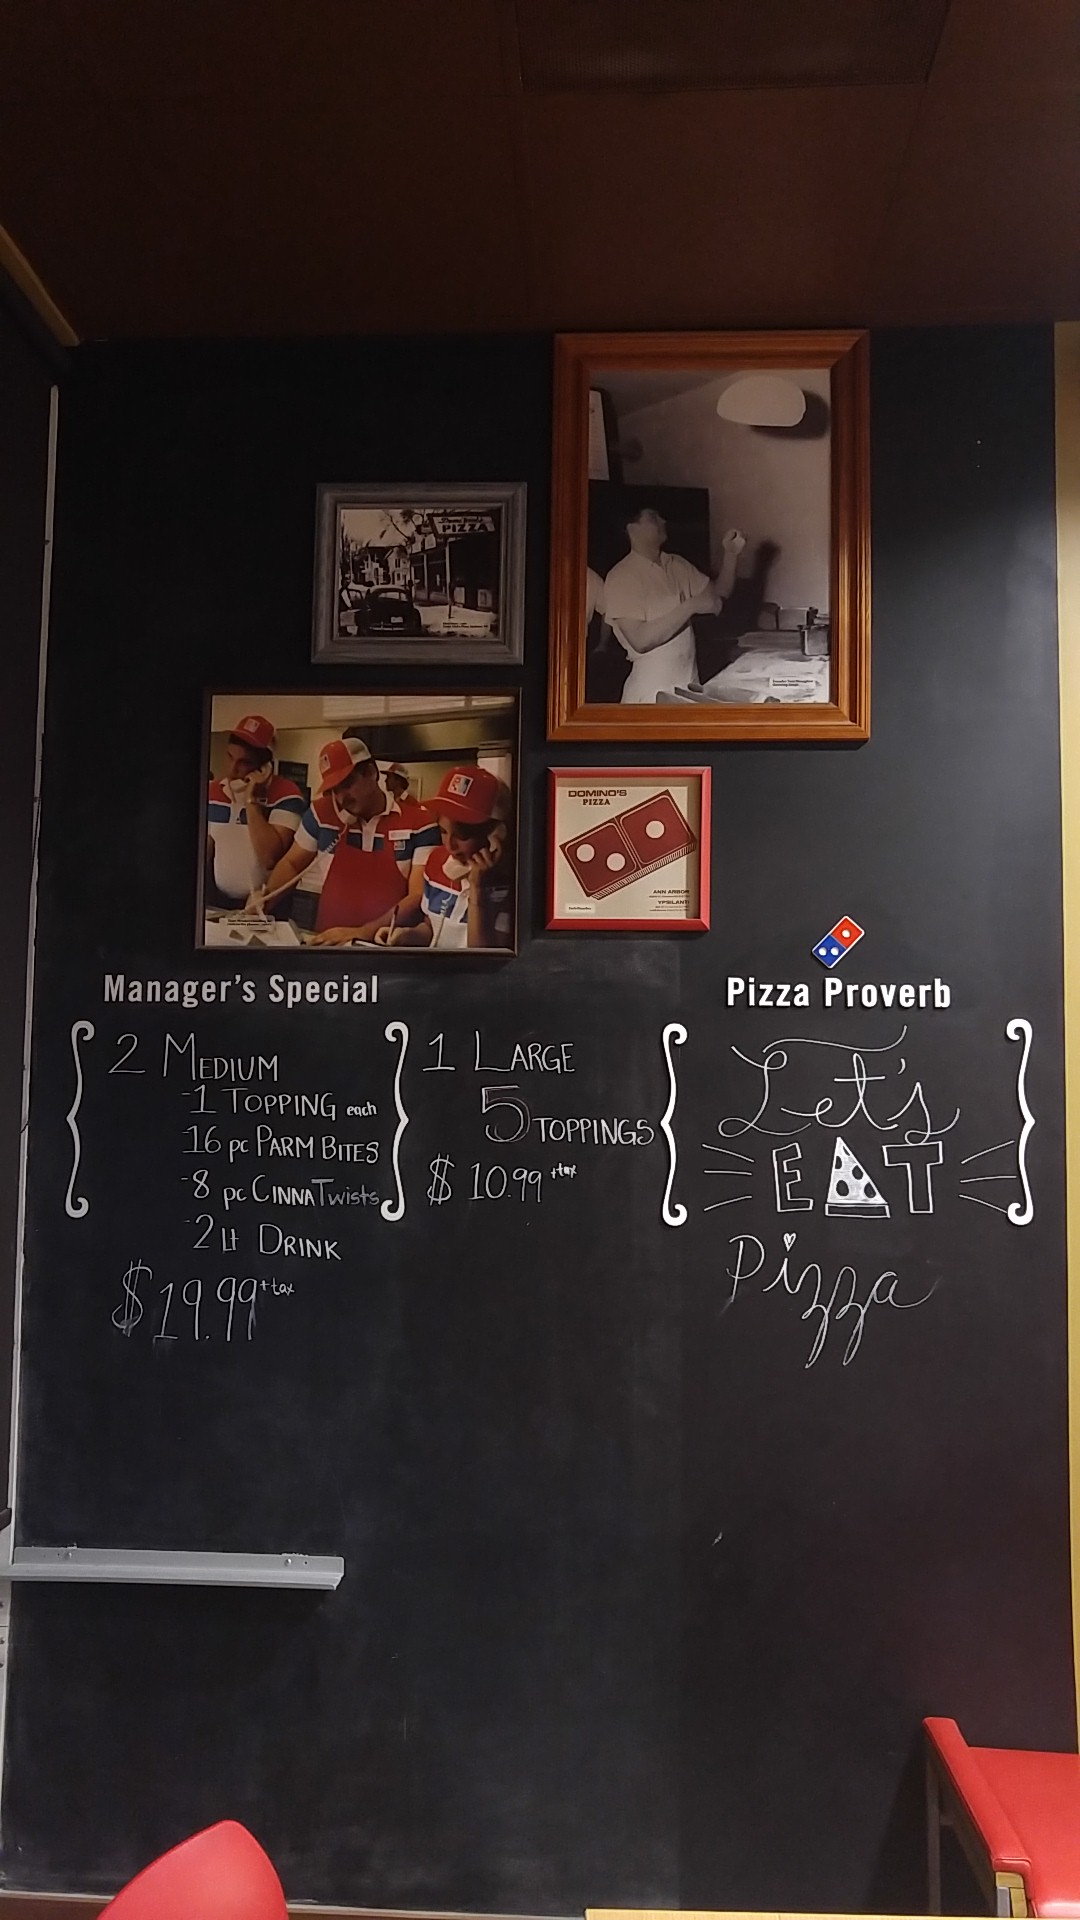 PIZZA
DOMINO'S
PIZZA
ANN ARBOR
YPSILANTI
Manager's Special
2 MEDIUM
-1 TOPPING each
-16 pc PARM BITES
-8 pc CINNATwists
-2 Lt DRINK
$19.99 +tax
1 LARGE
5 TOPPINGS
$10.99 +tax
Pizza Proverb
Let's
EAT
Pizza